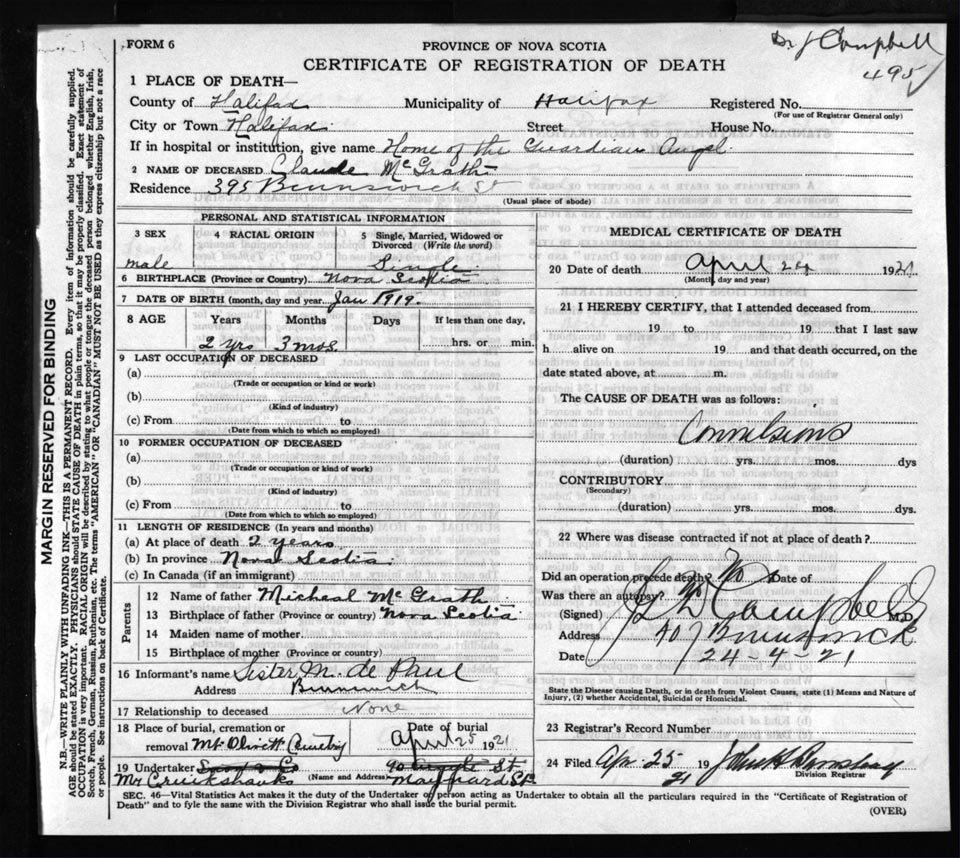 FORM 6
PROVINCE OF NOVA SCOTIA
Dr J Campbell
495
CERTIFICATE OF REGISTRATION OF DEATH
1 PLACE OF DEATH—
County of Halifax Municipality of Halifax Registered No.
(For use of Registrar General only)
City or Town Halifax Street House No.
If in hospital or institution, give name Home of the Guardian Angel
2 NAME OF DECEASED Claude McGrath
Residence 395 Brunswick St
(Usual place of abode)
PERSONAL AND STATISTICAL INFORMATION
3 SEX male
4 RACIAL ORIGIN
5 Single, Married, Widowed or Divorced (Write the word)
Single
6 BIRTHPLACE (Province or Country) Nova Scotia
7 DATE OF BIRTH (month, day and year) Jan 1919.
8 AGE Years Months Days If less than one day,
2 yrs 3 mos. hrs. or min.
9 LAST OCCUPATION OF DECEASED
(a)
(Trade or occupation or kind or work)
(b)
(Kind of industry)
(c) From to
(Date from which to which so employed)
10 FORMER OCCUPATION OF DECEASED
(a)
(Trade or occupation or kind of work)
(b)
(Kind of industry)
(c) From to
(Date from which to which so employed)
11 LENGTH OF RESIDENCE (In years and months)
(a) At place of death 2 years
(b) In province Nova Scotia
(c) In Canada (if an immigrant)
Parents
12 Name of father Micheal McGrath
13 Birthplace of father (Province or country) Nova Scotia
14 Maiden name of mother
15 Birthplace of mother (Province or country)
16 Informant's name Sister M. de Paul
Address Brunswick
17 Relationship to deceased None
18 Place of burial, cremation or removal Mt Olivett Cemetery
Date of burial April 25 1921
19 Undertaker Snow & Co 90 Argyle St
Mr Cruikshanks (Name and Address) Maynard St
MEDICAL CERTIFICATE OF DEATH
20 Date of death April 24 1921
(Month, day and year)
21 I HEREBY CERTIFY, that I attended deceased from
19 to 19 that I last saw
h alive on 19 and that death occurred, on the
date stated above, at m.
The CAUSE OF DEATH was as follows:
Convulsions
(duration) yrs. mos. dys
CONTRIBUTORY
(Secondary)
(duration) yrs. mos. dys.
22 Where was disease contracted if not at place of death?
Did an operation precede death? No Date of
Was there an autopsy? No
(Signed) Campbell M.D.
Address 407 Brunswick
Date 24-4-21
State the Disease causing Death, or in death from Violent Causes, state (1) Means and Nature of
Injury, (2) whether Accidental, Suicidal or Homicidal.
23 Registrar's Record Number
24 Filed Apr. 25 1921
Division Registrar
SEC. 46—Vital Statistics Act makes it the duty of the Undertaker or person acting as Undertaker to obtain all the particulars required in the "Certificate of Registration of
Death" and to fyle the same with the Division Registrar who shall issue the burial permit.
(OVER)
MARGIN RESERVED FOR BINDING
N.B.—WRITE PLAINLY WITH UNFADING INK—THIS IS A PERMANENT RECORD. Every item of information should be carefully supplied.
AGE should be stated EXACTLY. PHYSICIANS should STATE CAUSE OF DEATH in plain terms, so that it may be properly classified. Exact statement of
OCCUPATION is very important. RACIAL ORIGIN will be described by stating to what people or tongue the deceased person belonged whether English, Irish,
Scotch, French, German, Russian, Ruthenian, etc. The terms "AMERICAN" OR "CANADIAN" MUST NOT BE USED as they express citizenship but not a race
or people. See instructions on back of Certificate.